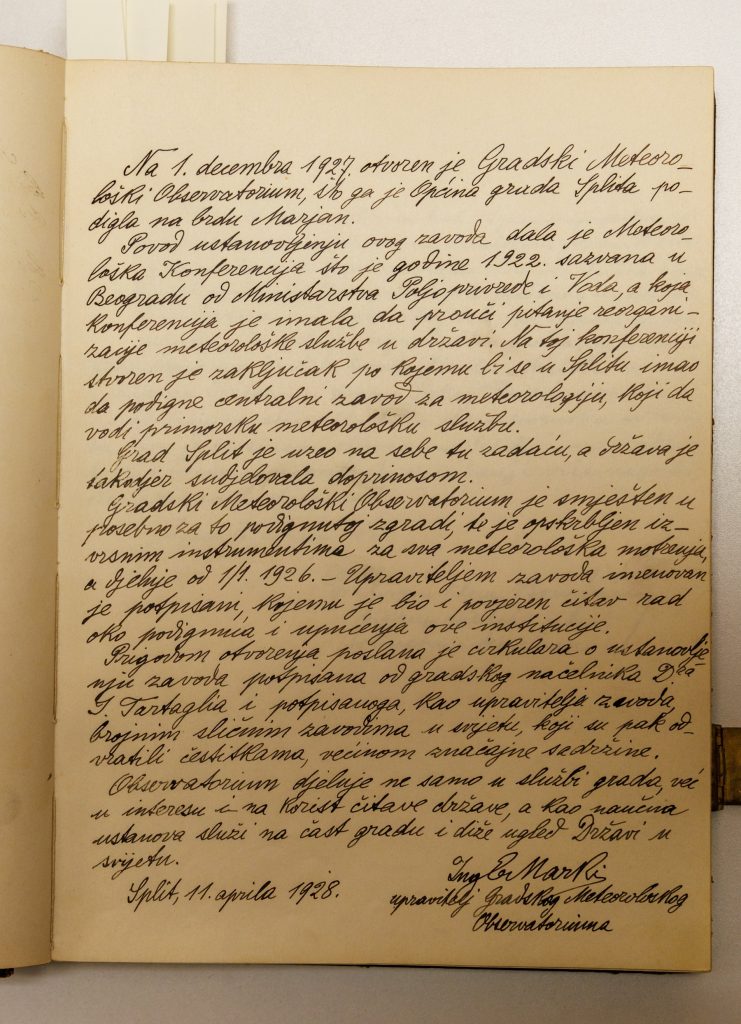 Na 1. decembra 1927. otvoren je Gradski Meteoro-
loški Observatorium, što ga je Općina grada Splita po-
digla na brdu Marjan.
Povod ustanovljenju ovog zavoda dala je Meteoro-
loška Konferencija što je godine 1922. sazvana u
Beogradu od Ministarstva Poljoprivrede i Voda, a koja
konferencija je imala da prouči pitanje reorgani-
zacije meteorološke službe u državi. Na toj konferenciji
stvoren je zaključak po kojemu bi se u Splitu imao
da podigne centralni zavod za meteorologiju, koji da
vodi primorsku meteorološku službu.
Grad Split je uzeo na sebe tu zadaću, a država je
takodjer sudjelovala doprinosom.
Gradski Meteorološki Observatorium je smješten u
posebno za to podignutoj zgradi, te je opskrbljen iz-
vrsnim instrumentima za sva meteorološka motrenja,
a djeluje od 1/1. 1926. – Upraviteljem zavoda imenovan
je potpisani, kojemu je bio i povjeren čitav rad
oko podignuća i upućenja ove institucije.
Prigodom otvorenja poslana je cirkulara o ustanovlje
nju zavoda potpisana od gradskog načelnika Dra
I. Tartaglia i potpisanoga, kao upravitelja zavoda,
brojnim sličnim zavodima u svijetu, koji su pak od-
vratili čestitkama, većinom značajne sadržine.
Observatorium djeluje ne samo u službi grada, već
u interesu i na korist čitave države, a kao naučna
ustanova služi na čast gradu i diže ugled Državi u
svijetu.
Split, 11. aprila 1928.
Ing E Marki
upravitelj Gradskog Meteorološkog
Observatoriuma